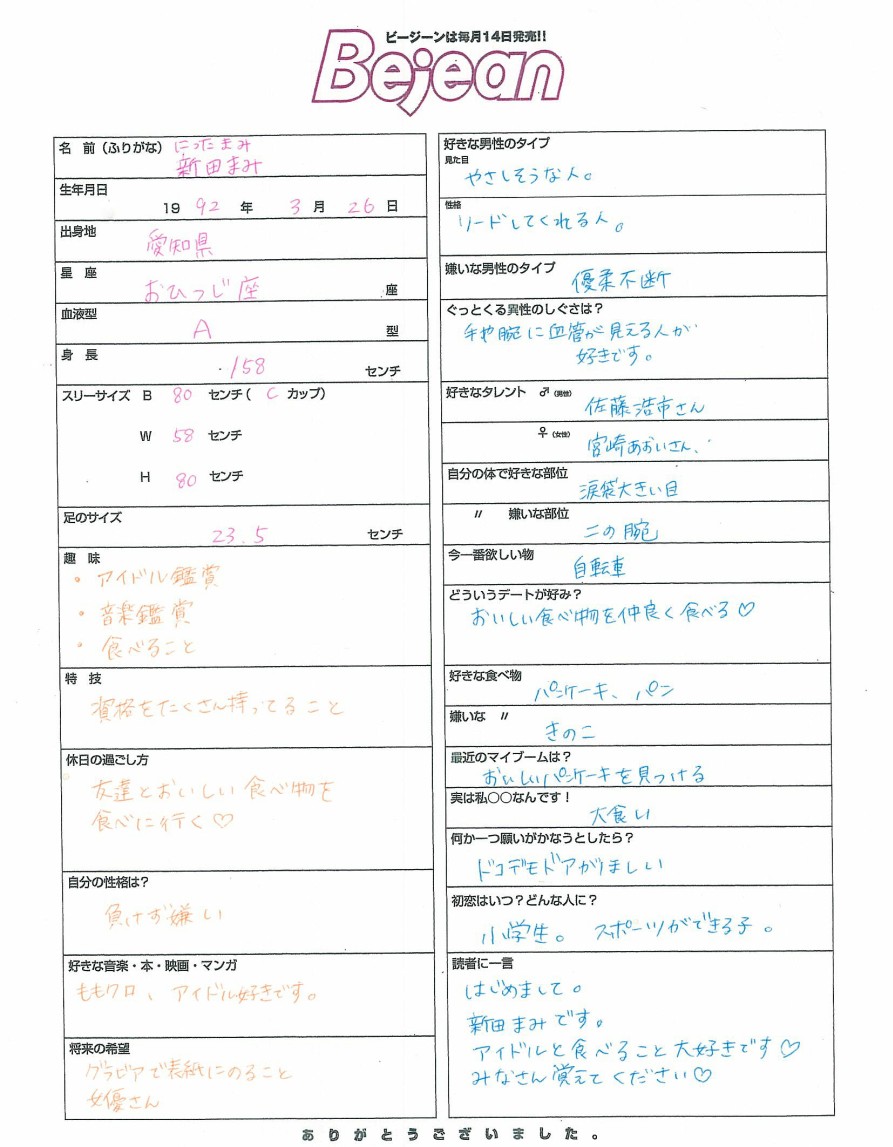 ビージーンは毎月14日発売!!
Bejean
名　前（ふりがな） にったまみ
新田まみ
生年月日
19 92 年 3 月 26 日
出身地
愛知県
星　座
おひつじ座 座
血液型
A 型
身　長
158 センチ
スリーサイズ B 80 センチ( C カップ)
W 58 センチ
H 80 センチ
足のサイズ
23.5 センチ
趣　味
・アイドル鑑賞
・音楽鑑賞
・食べること
特　技
資格をたくさん持ってること
休日の過ごし方
友達とおいしい食べ物を
食べに行く♡
自分の性格は？
負けず嫌い
好きな音楽・本・映画・マンガ
ももクロ、アイドル好きです。
将来の希望
グラビアで表紙にのること
女優さん
好きな男性のタイプ
見た目
やさしそうな人。
性格
リードしてくれる人。
嫌いな男性のタイプ
優柔不断
ぐっとくる異性のしぐさは？
手や腕に血管が見える人が
好きです。
好きなタレント ♂（男性）
佐藤浩市さん
♀（女性）
宮崎あおいさん、
自分の体で好きな部位
涙袋大きい目
〃　嫌いな部位
二の腕
今一番欲しい物
自転車
どういうデートが好み？
おいしい食べ物を仲良く食べる♡
好きな食べ物
パンケーキ、パン
嫌いな　〃
きのこ
最近のマイブームは？
おいしいパンケーキを見つける
実は私〇〇なんです！
大食い
何か一つ願いがかなうとしたら？
ドコデモドアがほしい
初恋はいつ？どんな人に？
小学生。スポーツができる子。
読者に一言
はじめまして。
新田まみです。
アイドルと食べること大好きです♡
みなさん覚えてください♡
ありがとうございました。